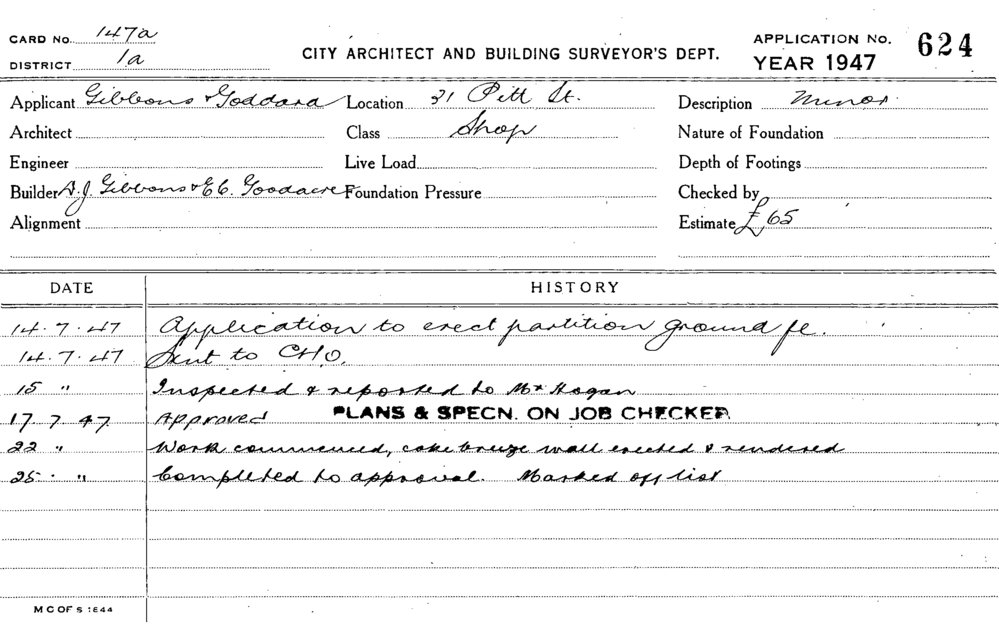 CARD No. 147a
DISTRICT 1a
CITY ARCHITECT AND BUILDING SURVEYOR'S DEPT.
APPLICATION No. 624
YEAR 1947
Applicant Gibbons & Goddard Location 31 Pitt St. Description Minor
Architect Class Shop Nature of Foundation
Engineer Live Load Depth of Footings
Builder A.J. Gibbons & E.C. Goodacre Foundation Pressure Checked by
Alignment Estimate £65
DATE HISTORY
14.7.47 Application to erect partition ground fl.
14.7.47 Sent to CHO.
15 " Inspected & reported to Mr Hogan
17.7.47 Approved PLANS & SPECN. ON JOB CHECKED
22 " Work commenced, coke breeze wall erected & rendered
25. " Completed to approval. Marked off list
M C OF S 1644